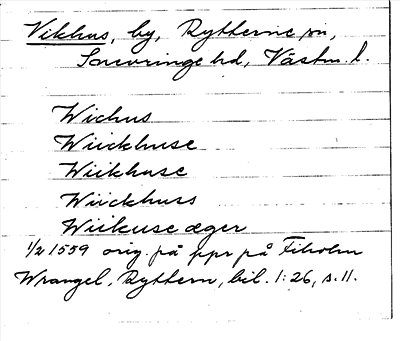 Vikhus, by, Rytterne sn,
Snevringe hd, Västm. l.
Wichus
Wiickhuse
Wiikhuse
Wiickhuss
Wiikuse æger
1/2 1559 orig. på ppr på Tidö
Wrangel, Ryttern, bil. 1:26, s. 11.